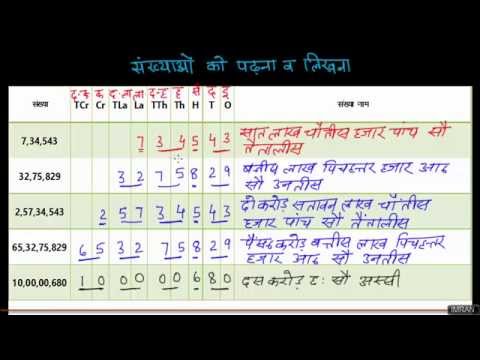 संख्याओं को पढ़ना व लिखना
संख्या द-क क द-ला ला द-ह ह सै द इ संख्या नाम
TCr Cr TLa La TTh Th H T O
7,34,543 7 3 4 5 4 3 सात लाख चौंतीस हजार पांच सौ
तैंतालीस
32,75,829 3 2 7 5 8 2 9 बत्तीस लाख पिचहत्तर हजार आठ
सौ उनतीस
2,57,34,543 2 5 7 3 4 5 4 3 दो करोड़ सतावन लाख चौंतीस
हजार पांच सौ तैंतालीस
65,32,75,829 6 5 3 2 7 5 8 2 9 पैंसठ करोड़ बत्तीस लाख पिचहत्तर
हजार आठ सौ उनतीस
10,00,00,680 1 0 0 0 0 0 6 8 0 दस करोड़ छः सौ अस्सी
IMRAN